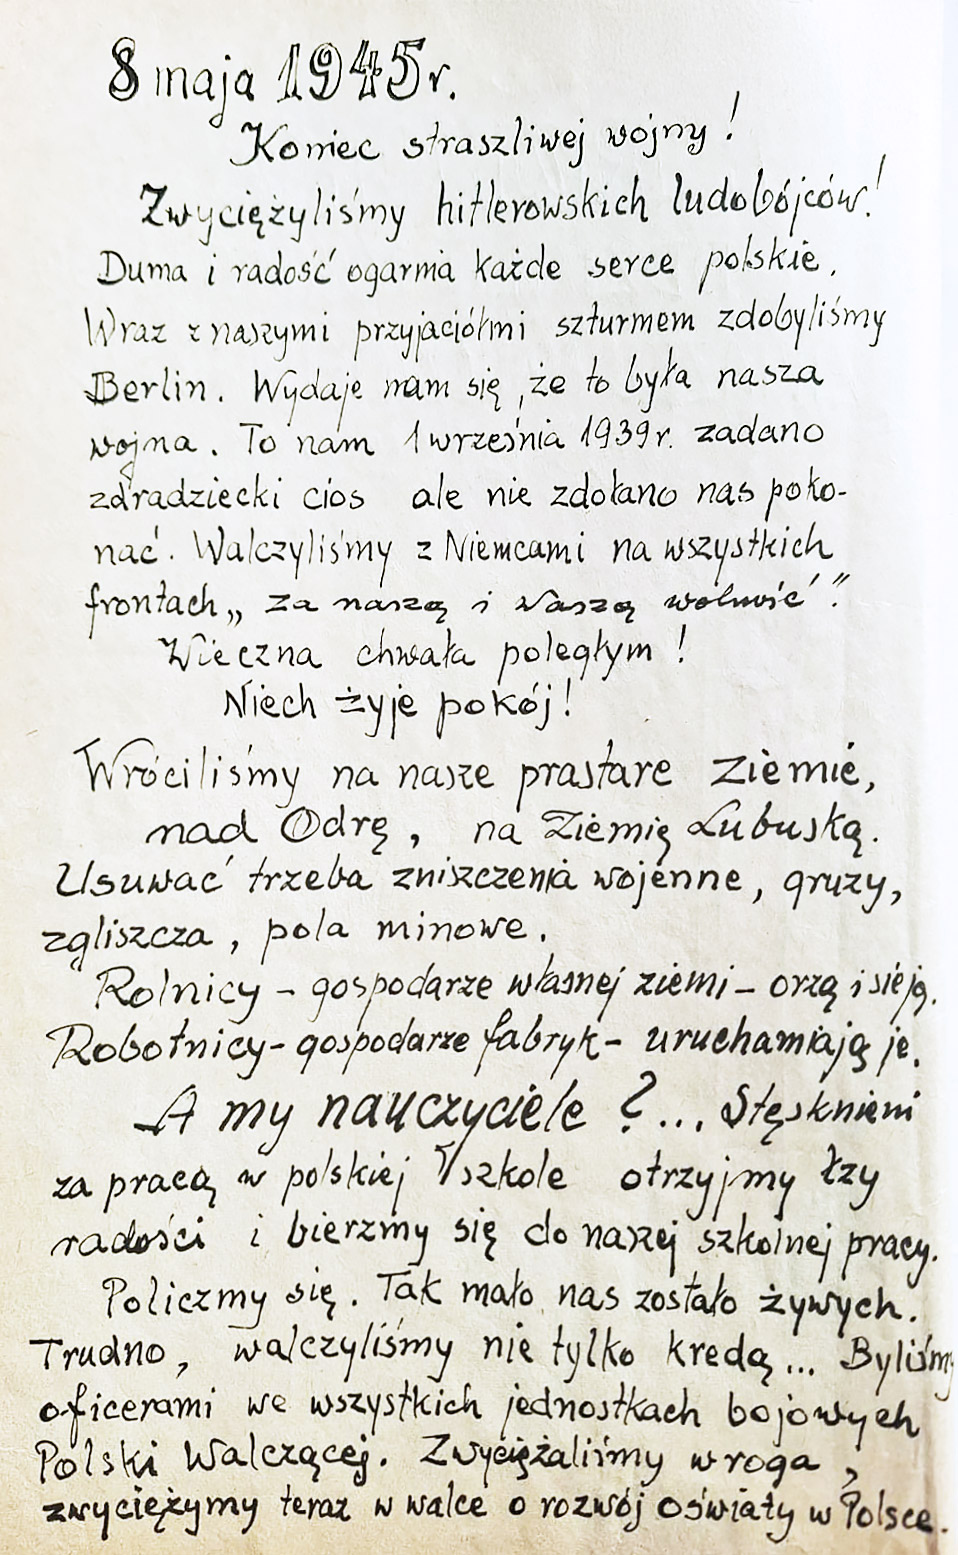 8 maja 1945 r.
Koniec straszliwej wojny!
Zwyciężyliśmy hitlerowskich ludobójców!
Duma i radość ogarnia każde serce polskie.
Wraz z naszymi przyjaciółmi szturmem zdobyliśmy
Berlin. Wydaje nam się, że to była nasza
wojna. To nam 1 września 1939 r. zadano
zdradziecki cios ale nie zdołano nas poko-
nać. Walczyliśmy z Niemcami na wszystkich
frontach „za naszą i Waszą wolność".
Wieczna chwała poległym!
Niech żyje pokój!
Wróciliśmy na nasze prastare ziemie,
nad Odrę, na Ziemię Lubuską.
Usuwać trzeba zniszczenia wojenne, gruzy,
zgliszcza, pola minowe.
Rolnicy - gospodarze własnej ziemi - orzą i sieją.
Robotnicy - gospodarze fabryk - uruchamiają je.
A my nauczyciele?... Stęsknieni
za pracą w polskiej szkole otrzyjmy łzy
radości i bierzmy się do naszej szkolnej pracy.
Policzmy się. Tak mało nas zostało żywych.
Trudno, walczyliśmy nie tylko kredą... Byliśmy
oficerami we wszystkich jednostkach bojowych
Polski Walczącej. Zwyciężaliśmy wroga,
zwyciężymy teraz w walce o rozwój oświaty w Polsce.